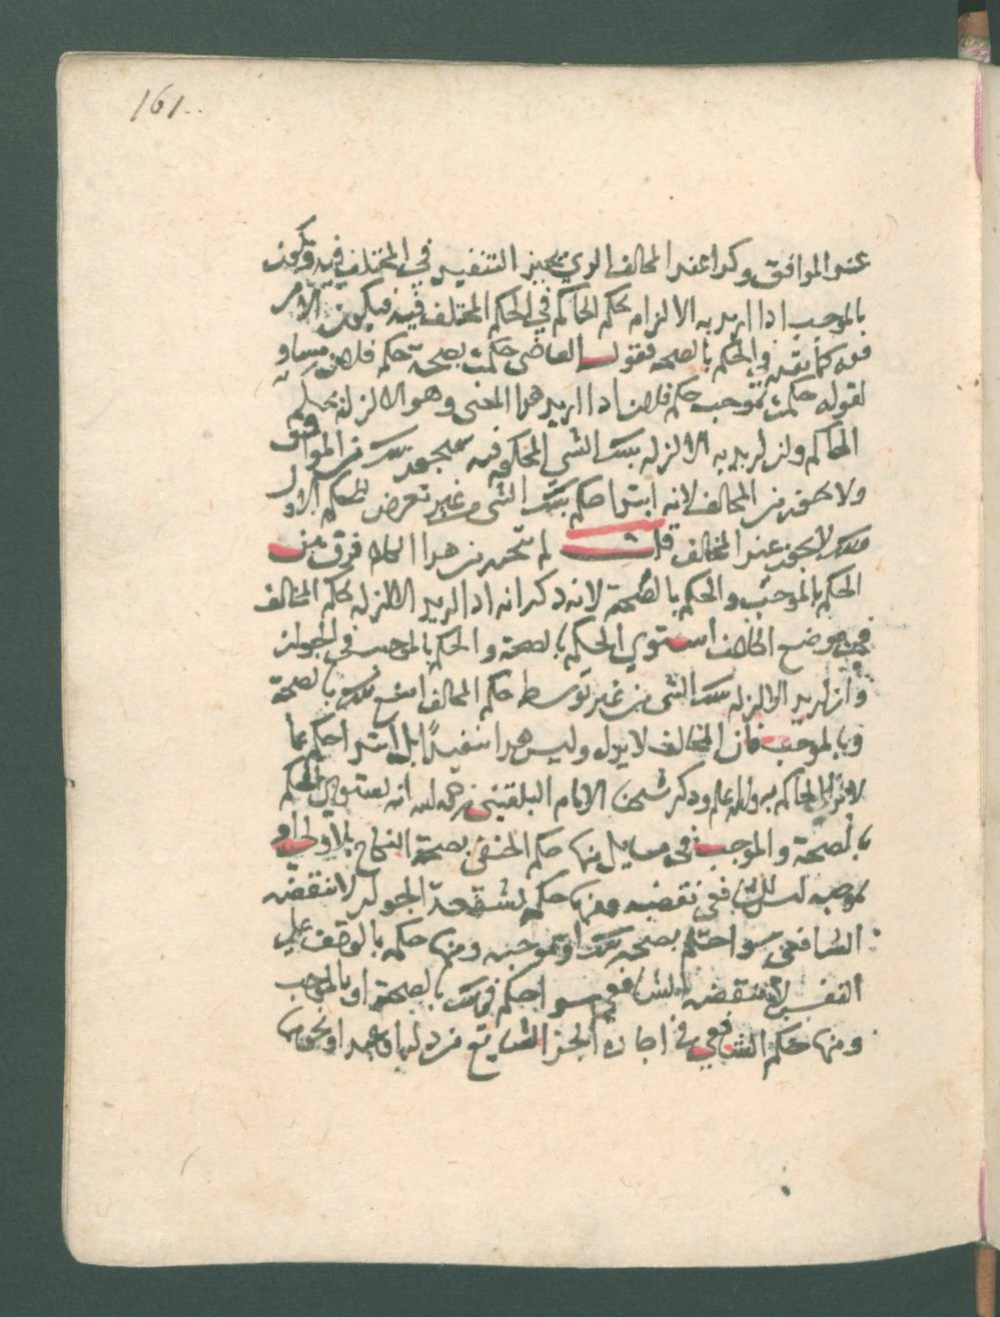 161
عند الموافق وكدا عند المخالف الدي يجيز التنفيد في المختلف فيه ويكون
بالموجب ادا اريد به الالزام بحكم الحاكم في الحكم المختلف فيه فيكون الامر
فيه كما تقدم في الحكم بالصحه فقول القاضي حكمت بصحة حكم فلان مساو
لقوله حكمت بموجب حكم فلان ادا اريد هدا المعنى وهو الالزام بحكم
الحاكم وان اريد به الالزام بدلك الشي المحكوم فيه فيجوز دلك من الموافق
ولا يجوز من المخالف لانه ابتدا حكم بدلك الشي من غير تعرض لحكم الاول
لا يجوز عند المخالف قلت لم يتحرر من هدا الكلام فرق بين
الحكم بالموجب والحكم بالصحة لانه دكر انه ادا اريد الالزام بحكم المخالف
في موضع الخلاف استوي الحكم بالصحة والحكم بالموجب في الجواز
وان اريد الالزام بدلك الشي من غير توسط حكم المخالف امتنع دلك بالصحة
وبالموجب فان المخالف لا يراه وليس هدا تنفيدًا بل ابتدا حكم بما
الحاكم به والله اعلم ودكر شيخنا الامام البلقيني رحمه الله انه يستوي الحكم
بالصحة والموجب في مسايل منها حكم الحنفي بصحة النكاح بلا ولي او
بموجبه ليس للشافعي نقضه ومنها حكم بشفعة الجوار لا ينقضه
الشافعي سوا حكم بصحة دلك او بموجبه ومنها حكمه بالوقف على
النفس لا ينقضه الشافعي سوا حكم فيه بالصحة او بالموجب
ومنها حكم الشافعي في اجازه الجز الشايع من دار او عبد او نحوها